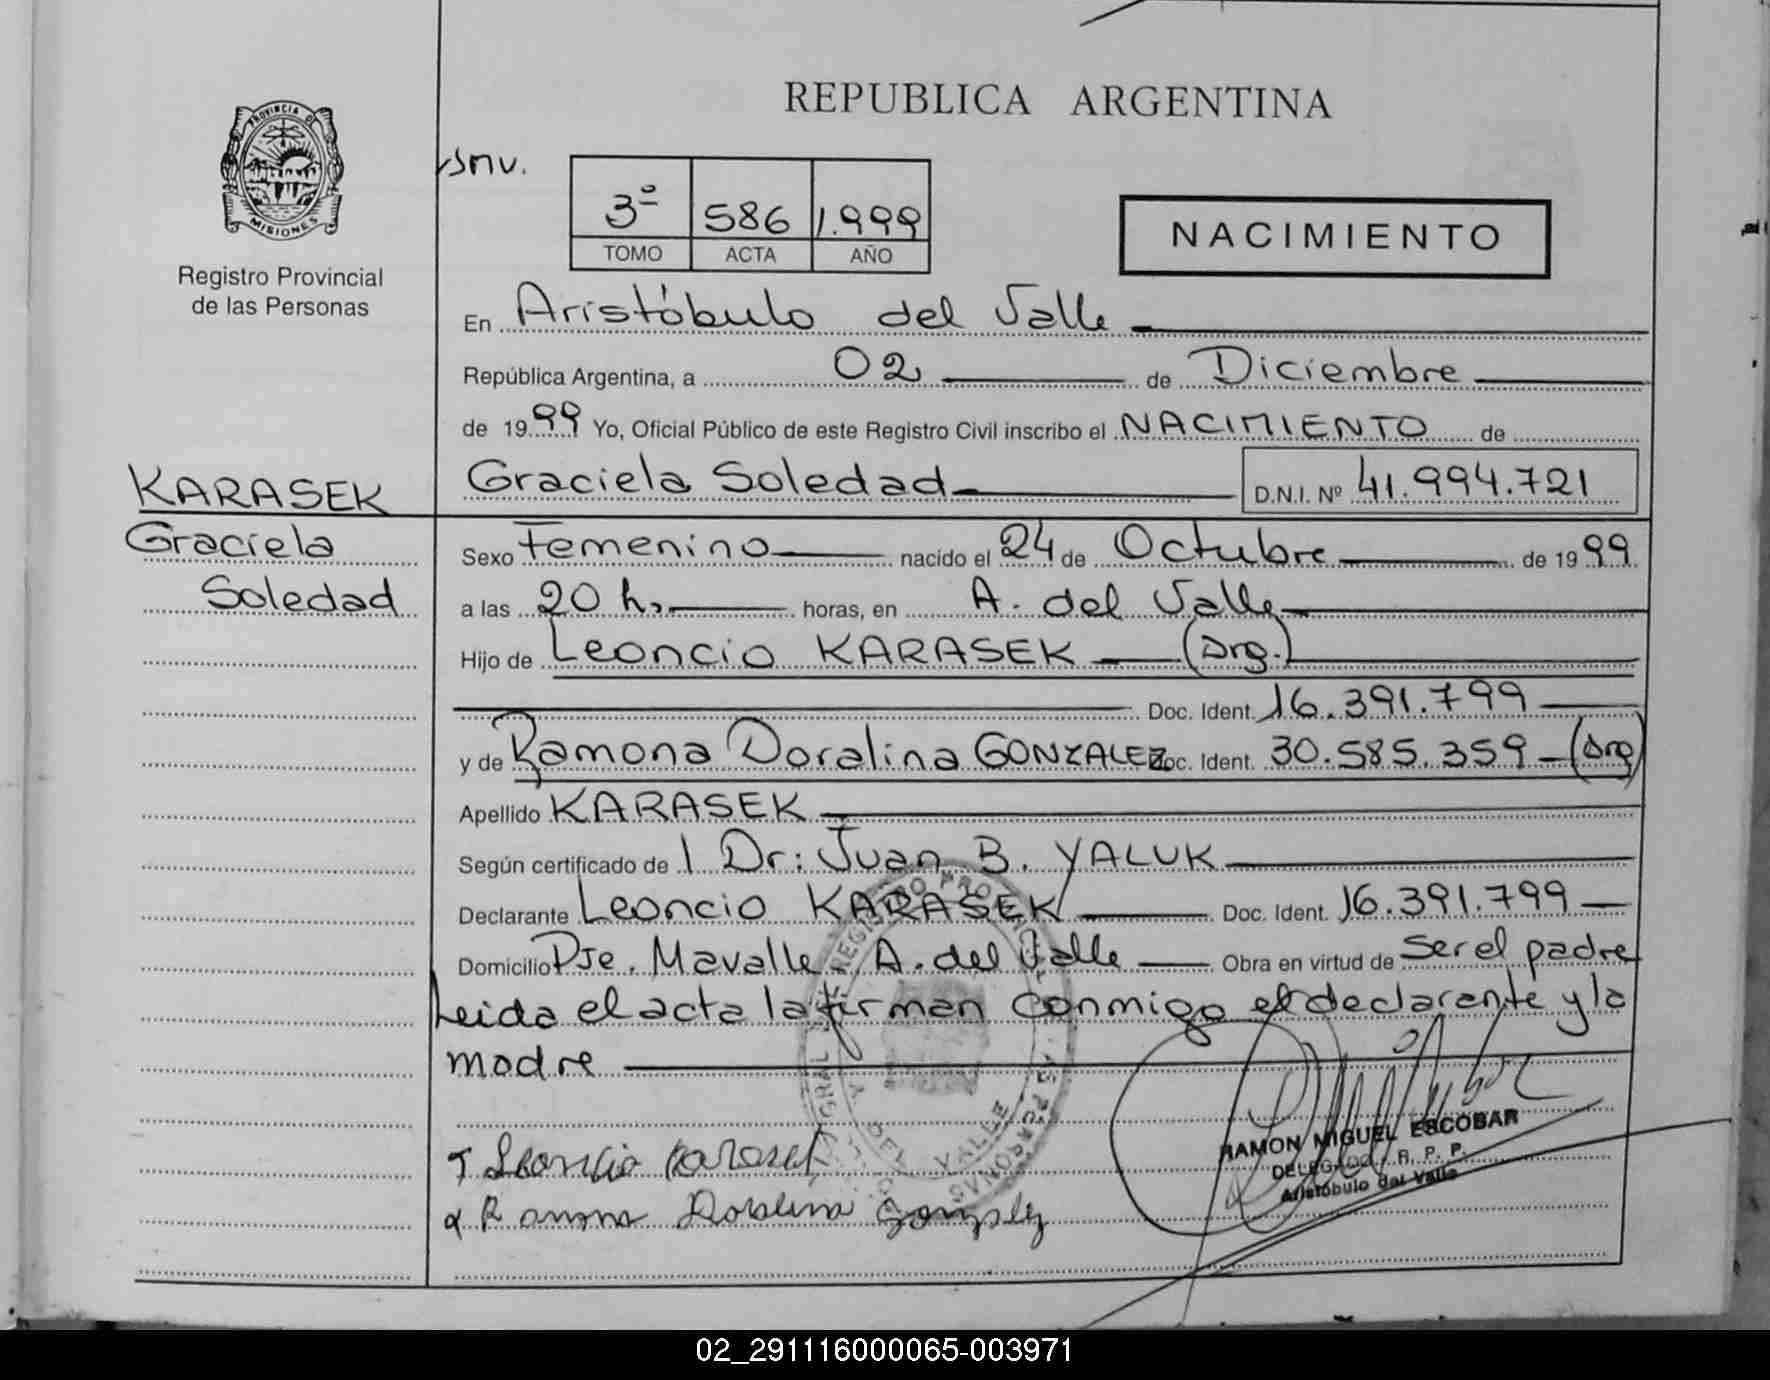 REPUBLICA ARGENTINA
PROVINCIA DE
MISIONES
Registro Provincial
de las Personas
3º 586 1.999
TOMO ACTA AÑO
NACIMIENTO
En Aristóbulo del Valle
República Argentina, a 02 de Diciembre
de 1999 Yo, Oficial Público de este Registro Civil inscribo el NACIMIENTO de
KARASEK
Graciela
Soledad
Graciela Soledad D.N.I. Nº 41.994.721
Sexo Femenino nacido el 24 de Octubre de 1999
a las 20 hs horas, en A. del Valle
Hijo de Leoncio KARASEK (Arg.)
Doc. Ident. 16.391.799
y de Ramona Doralina GONZALEZ Doc. Ident. 30.585.359 (Arg)
Apellido KARASEK
Según certificado de l Dr: Juan B. YALUK
Declarante Leoncio KARASEK Doc. Ident. 16.391.799
Domicilio Pje. Mavalle. A. del Valle Obra en virtud de Ser el padre
Leida el acta la firman conmigo el declarante y la
madre
Leoncio Karasek
Ramona Doralina Gonzalez
RAMON MIGUEL ESCOBAR
DELEGADO R. P. P.
Aristóbulo del Valle
02_291116000065-003971